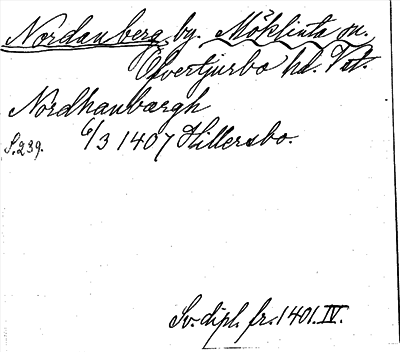 Nordanberg by. Möklinta sn.
Öfvertjurbo hd. Vstm.
Nordhanbærgh
S. 239. 6/3 1407 Hillersbo.
Sv. dipl. fr. 1401. IV.